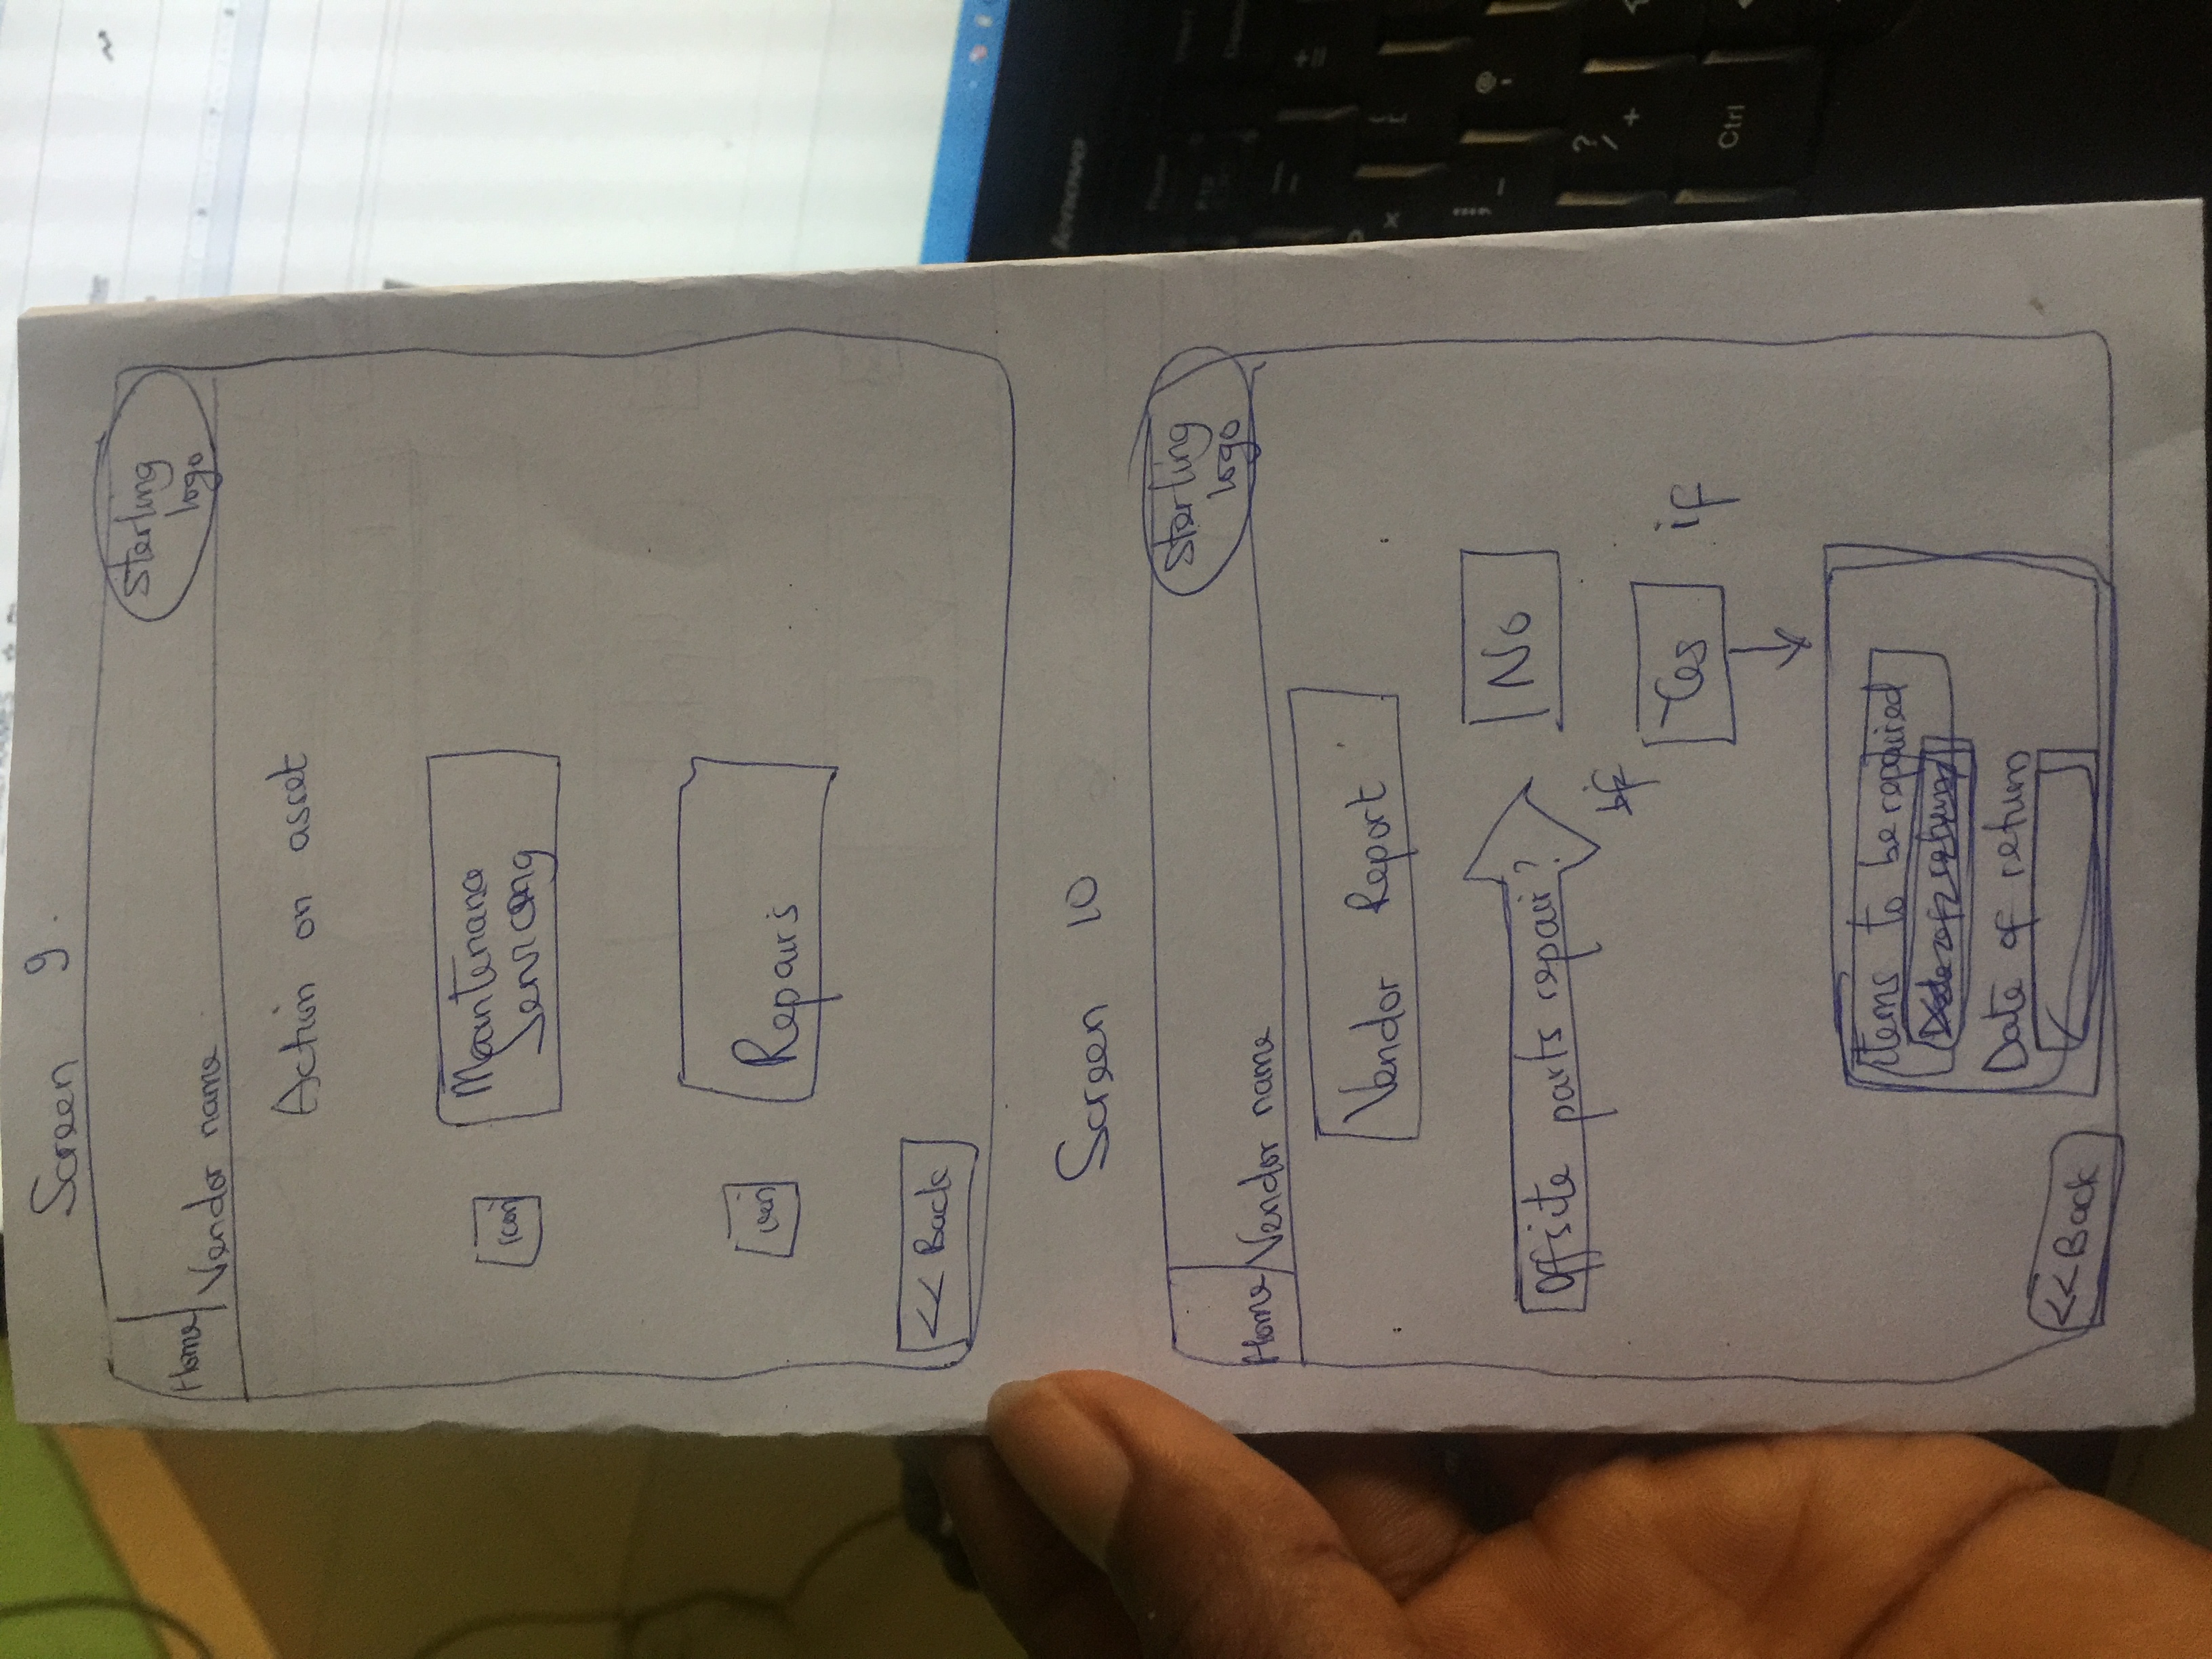 Screen 9.
Home
Vendor name
Sterling
logo
Action on asset
icon
Maintenance
Servicing
icon
Repairs
<< Back
Screen 10
Home
Vendor name
Sterling
logo
Vendor Report
Offsite parts repair?
No
if
Yes
if
items to be repaired
Date of return
Date of return
<< Back
lenovo
Ctrl